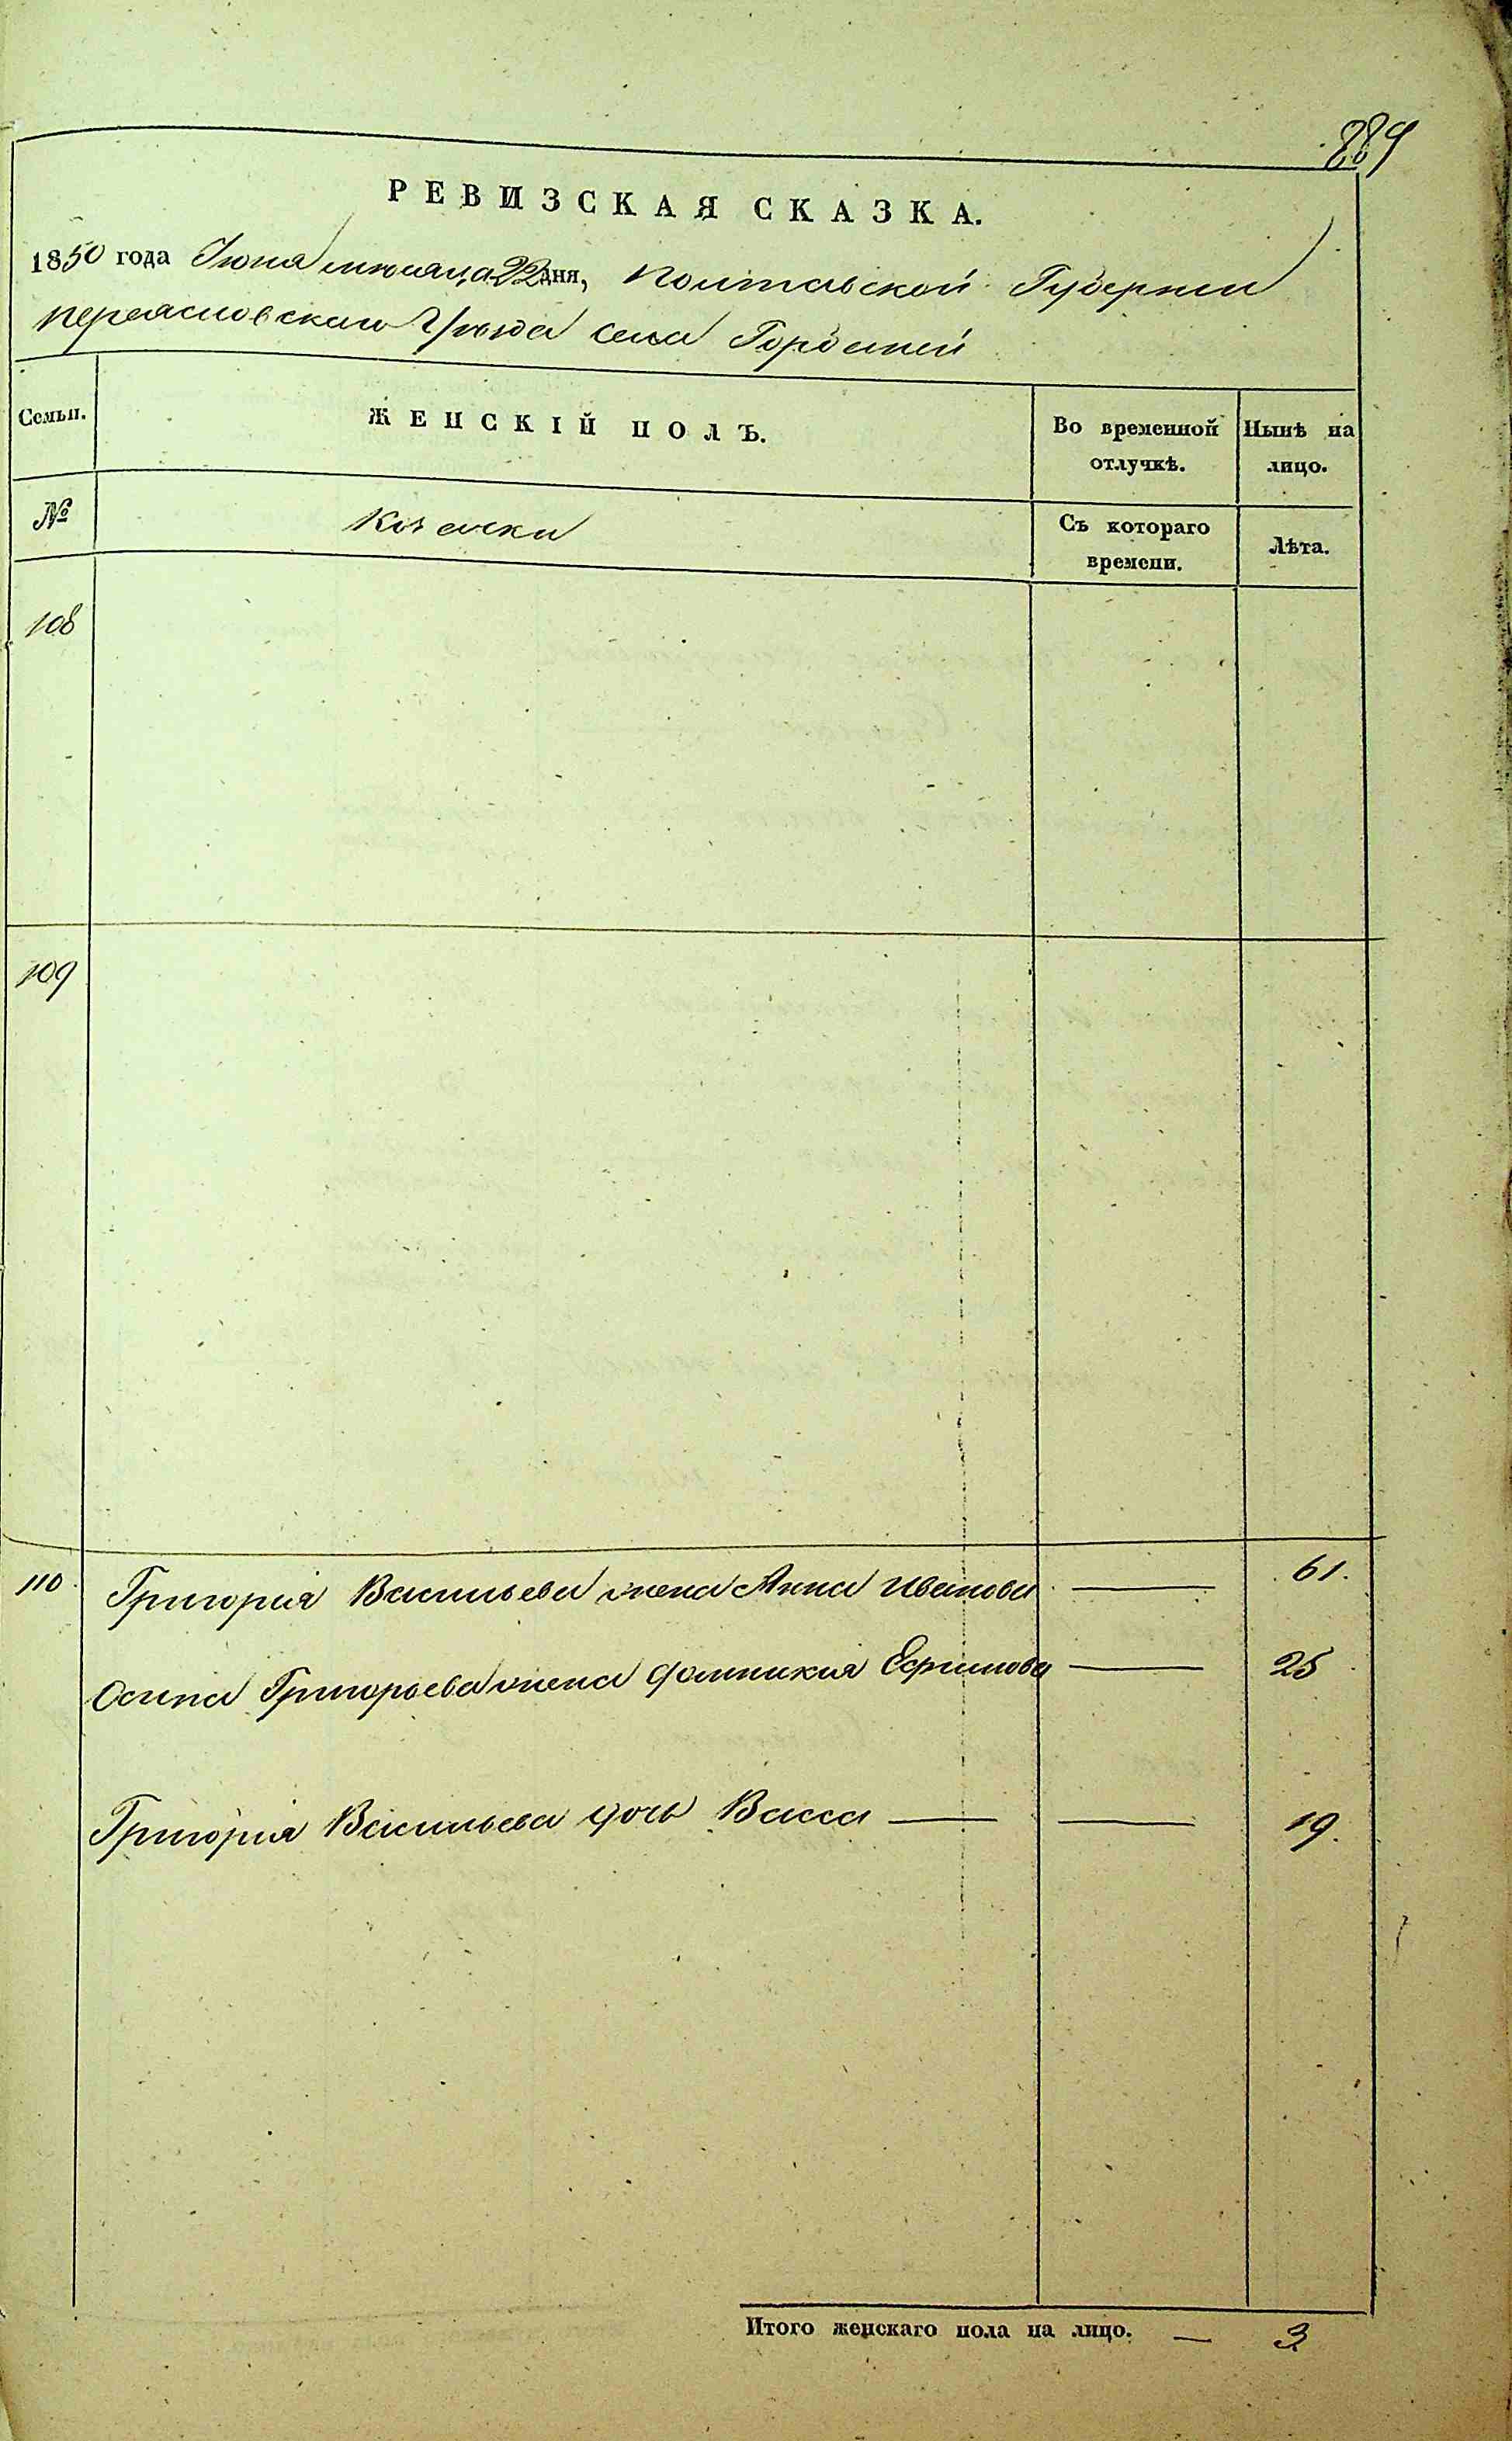 289
РЕВИЗСКАЯ СКАЗКА.
1850 года Июня месяца 22 дня, Полтавской Губернии
Переясловского Уезда села
Семьи.
ЖЕНСКІЙ ПОЛЪ.
Во временной отлучкѣ.
Нынѣ на лицо.
№
Козачки
Съ котораго времени.
Лѣта.
108
109
110. Григория Васильева жена Анна Иванова — 61.
Осипа Григорьева жена Домникия Ефимова — 25
Григория Васильева дочь Васса — — 19.
Итого женскаго пола на лицо. — 3